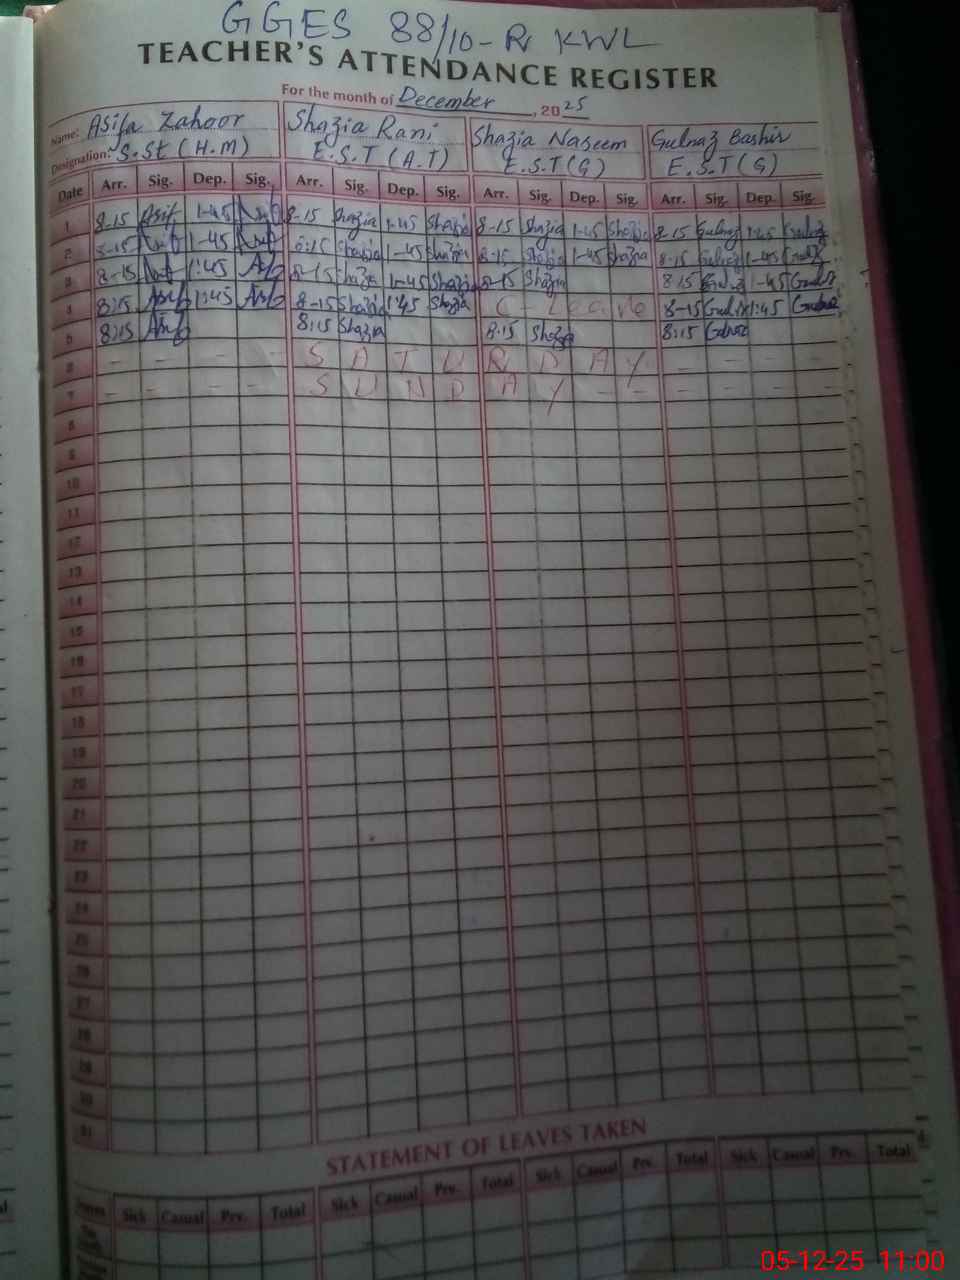 GGES 88/10-R KWL
TEACHER'S ATTENDANCE REGISTER
For the month of December, 2025
Name: Asifa Zahoor Shazia Rani Shazia Naseem Gulnaz Bashir
Designation: S.St (H.M) E.S.T (A.T) E.S.T (G) E.S.T (G)
Date Arr. Sig. Dep. Sig. Arr. Sig. Dep. Sig. Arr. Sig. Dep. Sig. Arr. Sig. Dep. Sig.
1 8-15 Asif 1-45 8-15 Shazia 1:45 Shazia 8-15 Shazia 1-45 Shazia 8-15 Gulnaz 1:45 Gulnaz
2 8-15 1-45 8:15 Shazia 1-45 Shazia 8-15 Shazia 1-45 Shazia 8-15 Gulnaz 1-45
3 8-15 1:45 8-15 Shazia 1-45 Shazia 8-15 Shazia 8:15 1-45
4 8:15 1:45 8-15 Shazia 1:45 Shazia C-Leave 8-15 1:45
5 8:15 8:15 Shazia 8:15 Shazia 8:15
6 - - - - S A T U R D A Y - - - -
7 - - - - S U N D A Y - - - - - -
8
9
10
11
12
13
14
15
16
17
18
19
20
21
22
23
24
25
26
27
28
29
30
31
STATEMENT OF LEAVES TAKEN
Sick Casual Prv. Total Sick Casual Prv. Total Sick Casual Prv. Total Sick Casual Prv. Total
05-12-25 11:00